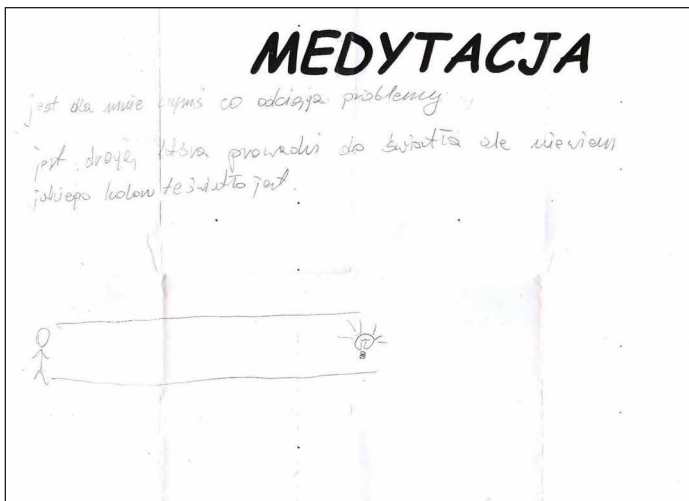 MEDYTACJA
jest dla mnie czymś co odciąga problemy.
jest drogą która prowadzi do światła ale niewiem
jakiego koloru te światło jest.